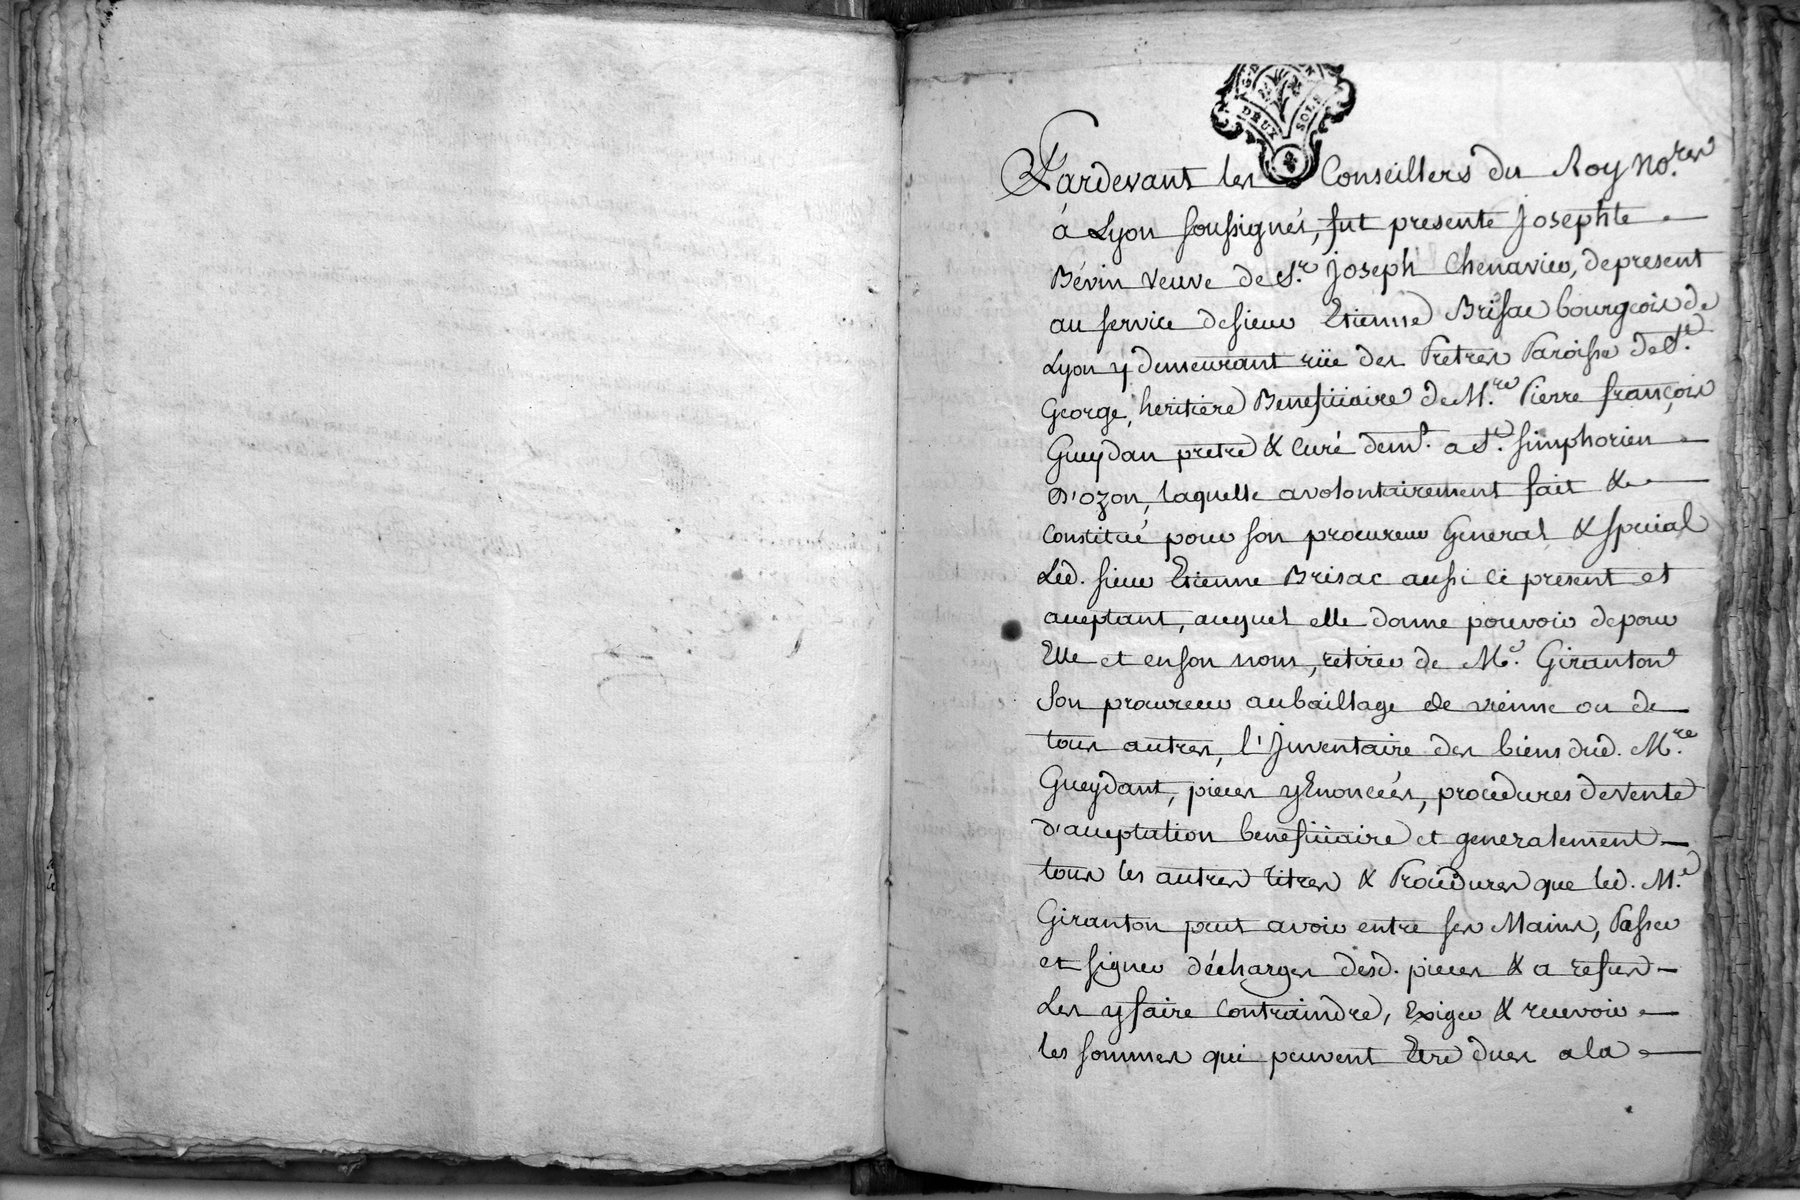 DEUX SOLS
Pardevant les Conseillers du Roy no.res
à Lyon soussignés, fut presente Josephte
Bévin veuve de Sr. Joseph Chenavier, depresent
au service de sieur Etienne Brisac bourgeois de
Lyon y demeurant rüe des Pretres Paroisse de St.
George, heritiere Beneficiaire de M.re Pierre françois
Gueydan pretre & Curé dem.t a St. simphorien
D'ozon, laquelle avolontairement fait &
constitué pour son procureur General & special
Led. sieur Etienne Brisac aussi ci present et
acceptant, auquel elle donne pouvoir depour
Elle et enson nom, retirer de Me. Giranton
son procureur aubailliage de vienne ou de
tous autres, l'Inventaire des biens dud. M.re
Gueydant, pieces yEnoncées, procedures devente
d'acceptation beneficiaire et generalement
tous les autres titres & Procedures que led. Me.
Giranton peut avoir entre ses Mains, Passer
et signer décharges desd. pieces & a refus
Les y faire contraindre, Exiger & recevoir
les sommes qui peuvent Etre dues a la